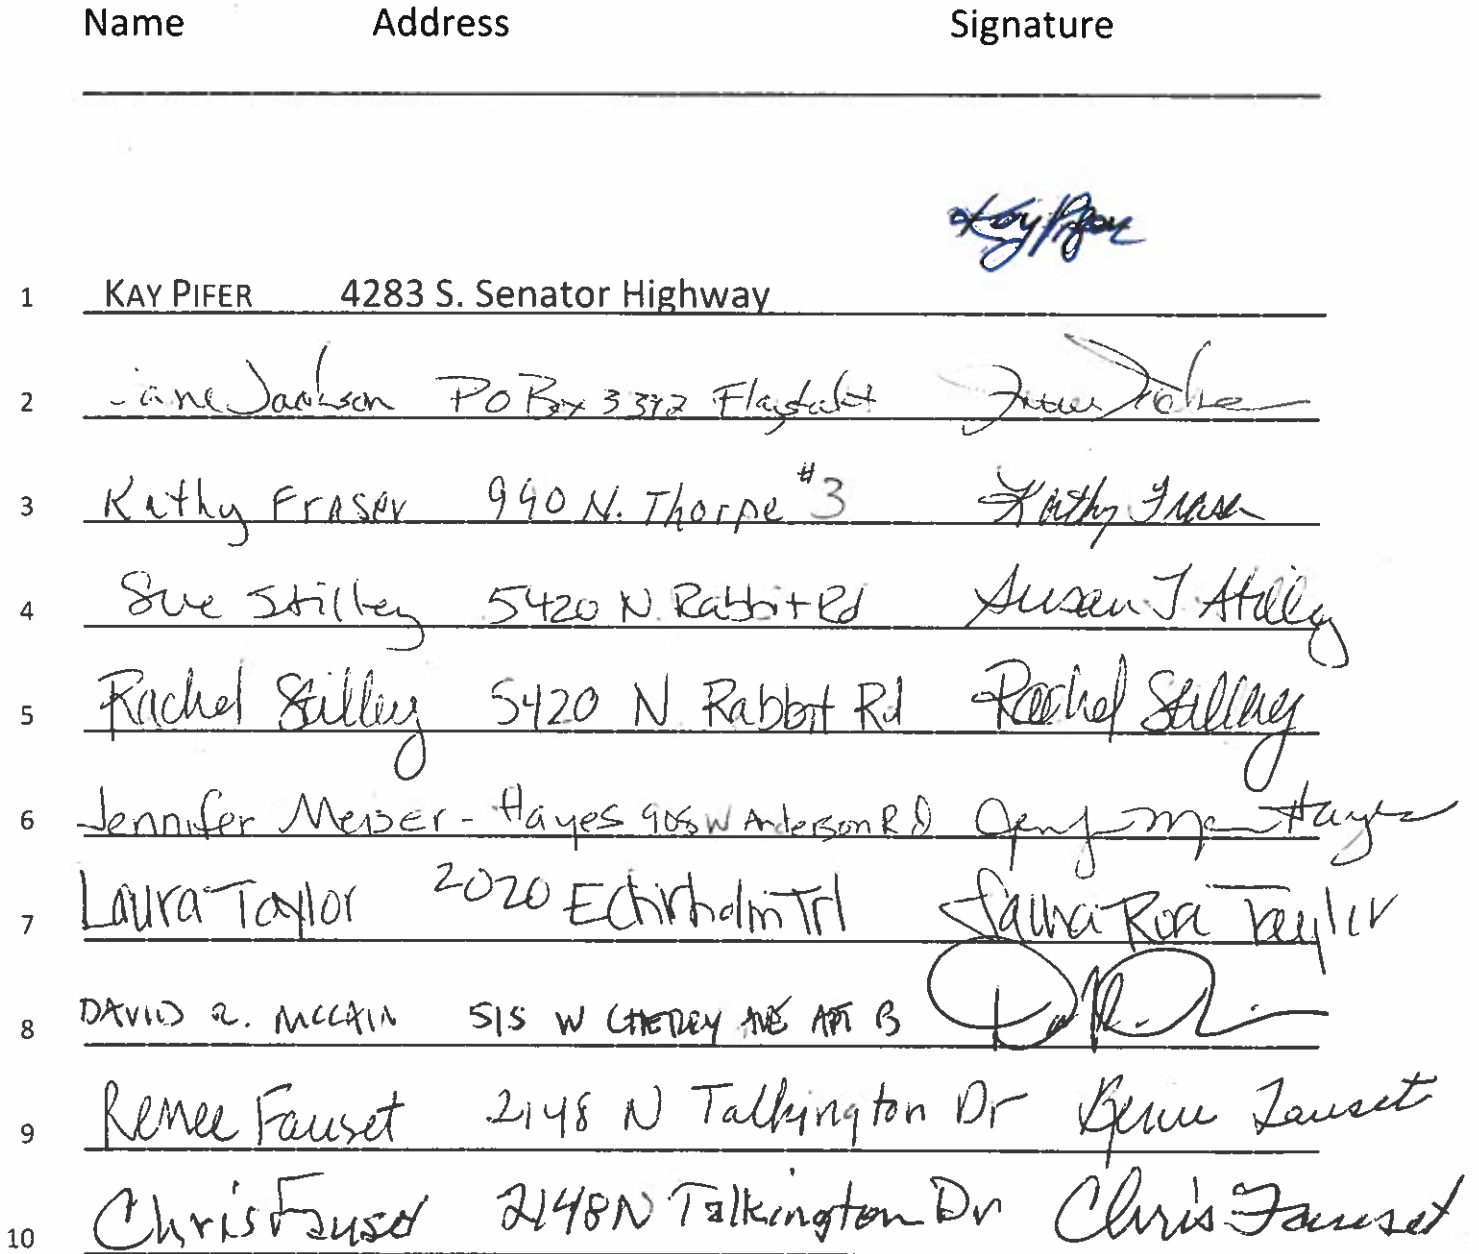 Name Address Signature
1 KAY PIFER 4283 S. Senator Highway Kay Pifer
2 Jackson PO Box Flagstaff
3 Kathy Fraser 990 N. Thorpe #3 Kathy Fraser
4 Sue Stilley 5420 N. Rabbit Rd Susan J Stilley
5 Rachel Stilley 5420 N Rabbit Rd Rachel Stilley
6 Jennifer Meiser-Hayes 908 W Anderson Rd Hayes
7 Laura Taylor 2020 Trl Laura Taylor
8 DAVID R. MCCAIN 515 W CHERRY AVE APT B
9 Renee Fauset 2148 N Talkington Dr Renee Fauset
10 Chris Fauset 2148 N Talkington Dr Chris Fauset